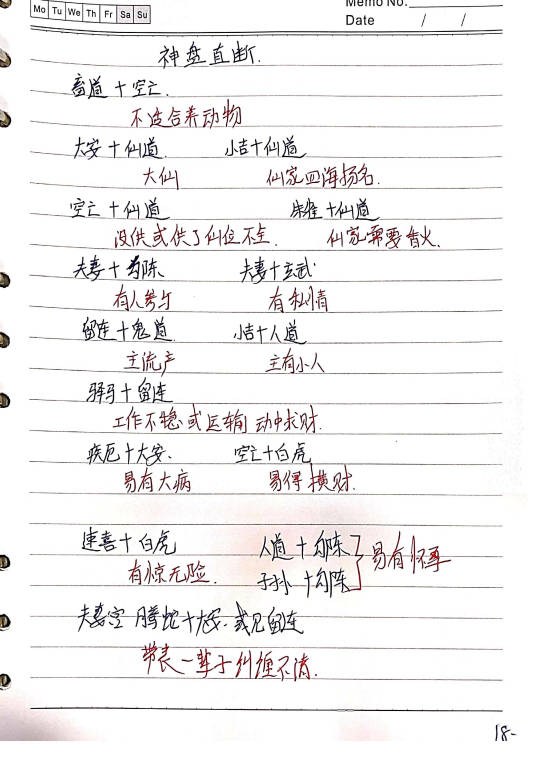 Mo Tu We Th Fr Sa Su
Memo No.
Date / /
神盘直断.
畜道十空亡.
不适合养动物
大安十仙道 小吉十仙道
大仙 仙家四海扬名.
空亡十仙道 朱雀十仙道
没供或供了仙位不全. 仙家需要香火.
夫妻十勾陈 夫妻十玄武
有人 有私情
留连十鬼道 小吉十人道
主流产 主有小人
驿马十留连
工作不稳或运输 动中求财.
疾厄十大安. 空亡十白虎
易有大病 易得横财.
速喜十白虎 人道十勾陈
有惊无险. 子孙十勾陈 易有怀孕
夫妻宫 腾蛇十大安.或见留连
带表一辈子纠缠不清.
18-